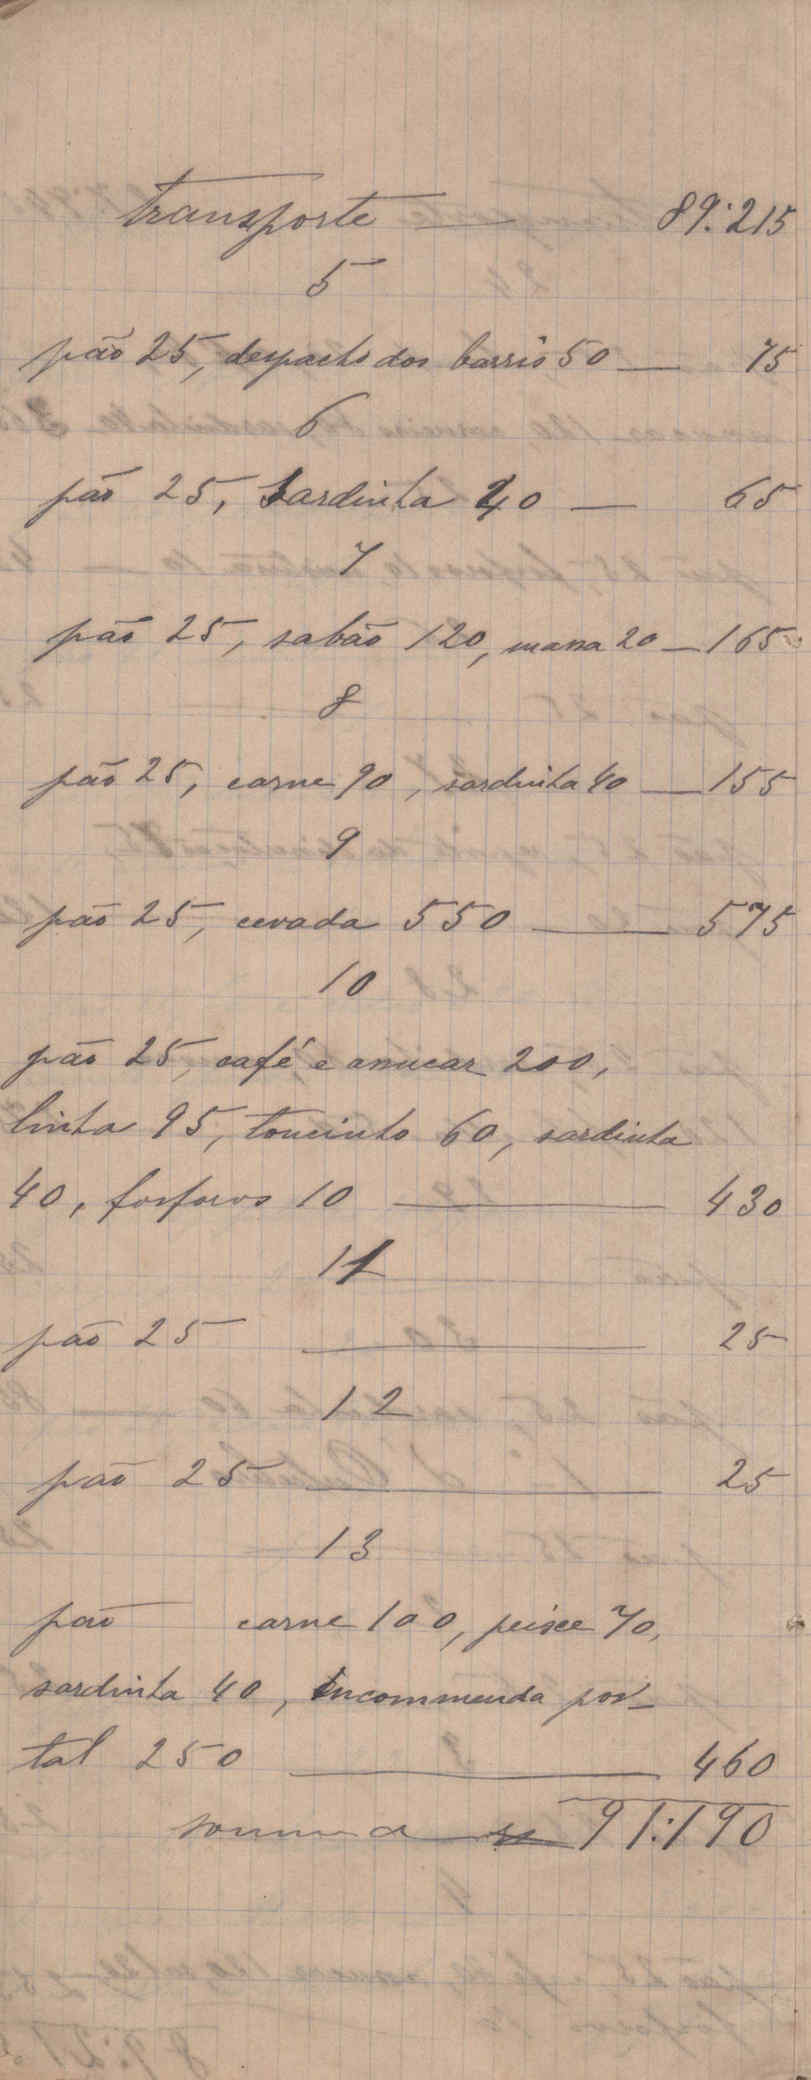 Transporte — 89:215
5
pão 25, despacho dos barris 50 — 75
6
pão 25, Sardinha 40 — 65
7
pão 25, sabão 120, massa 20 — 165
8
pão 25, carne 90, sardinha 40 — 155
9
pão 25, cevada 550 — 575
10
pão 25, café e assucar 200,
linha 95, toucinho 60, sardinha
40, fosforos 10 — 430
11
pão 25 — 25
12
pão 25 — 25
13
pão carne 100, peixe 70,
sardinha 40, encommenda pos-
tal 250 — 460
somma 91:190